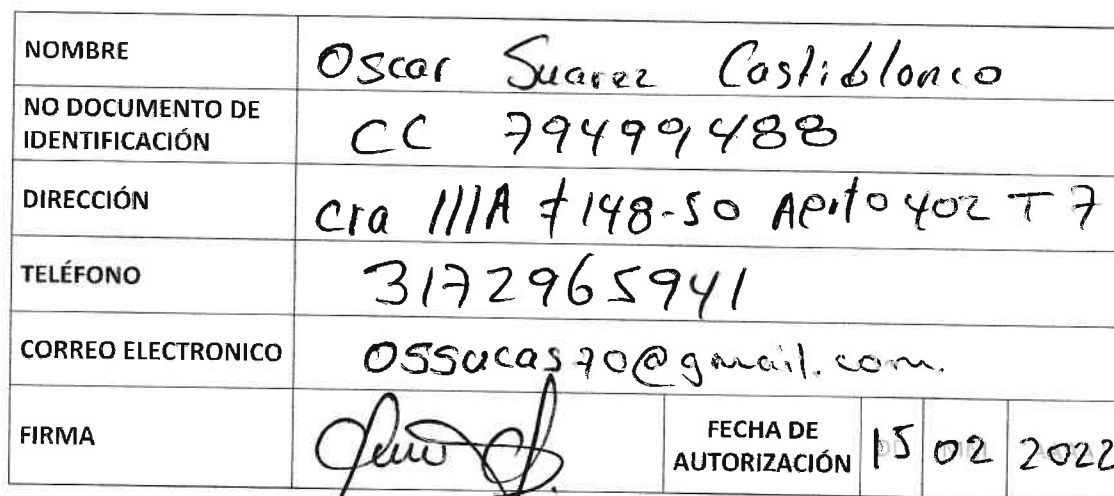 NOMBRE Oscar Suarez Castiblanco
NO DOCUMENTO DE
IDENTIFICACIÓN CC 79499488
DIRECCIÓN Cra 111A #148-50 Apto 402 T 7
TELÉFONO 3172965941
CORREO ELECTRONICO ossucas70@gmail.com.
FIRMA FECHA DE
AUTORIZACIÓN 15 02 2022